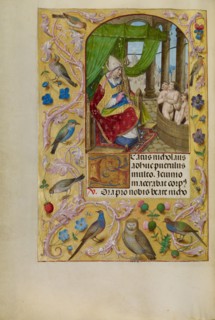 Eatus nicholaus
adhuc puerulus
multo. Ieiunio
macerabat corpꝰ
V. Ora pro nobis beate nicho